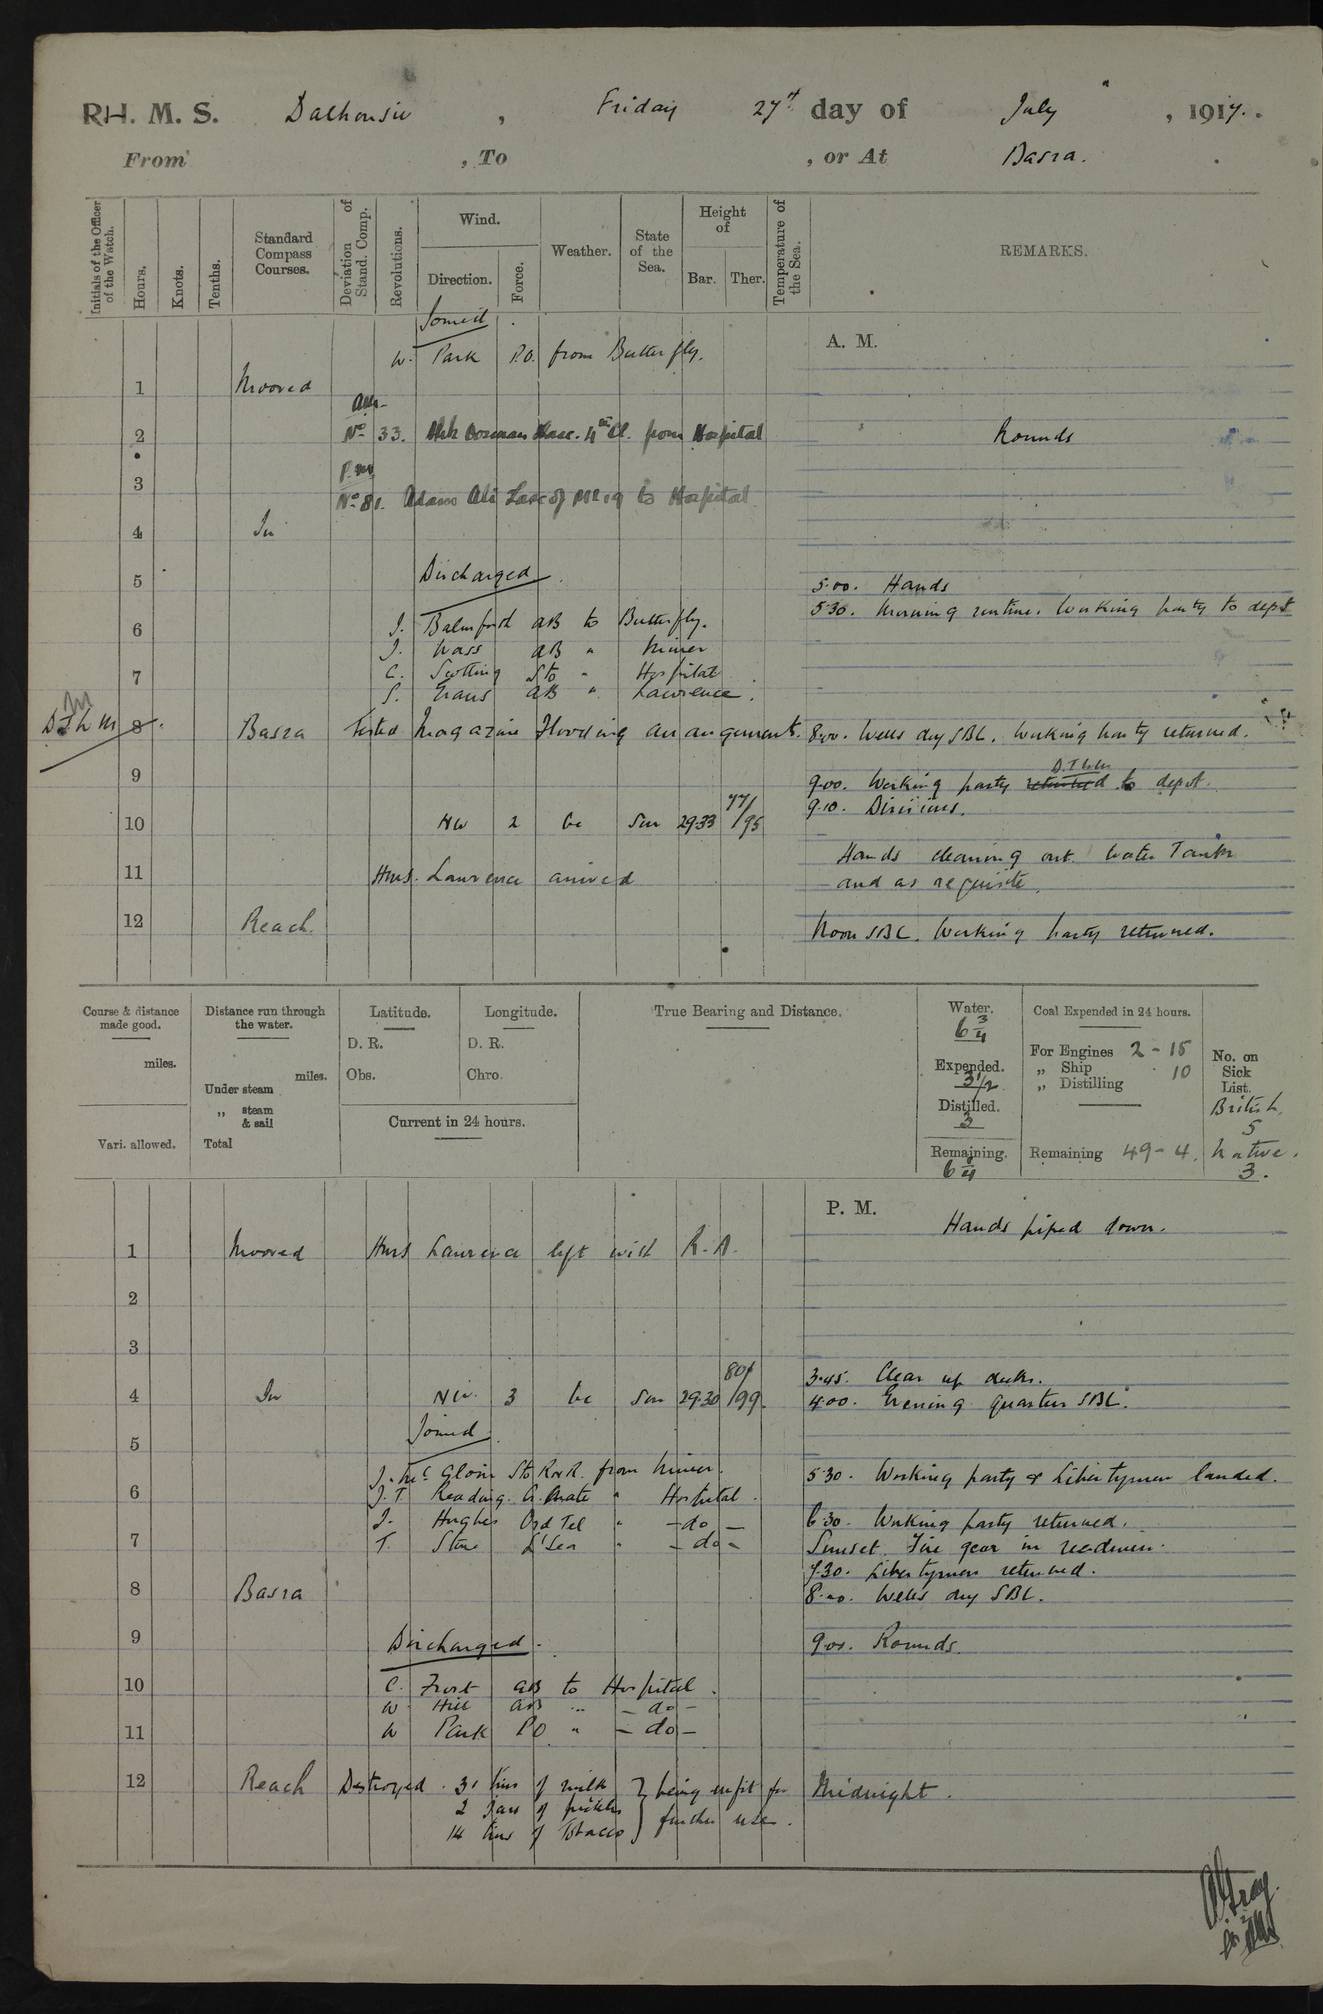 R H. M. S. Dalhousie, Friday 27th day of July, 1917.
From , To , or At Basra.
Initials of the Officer of the Watch.
Hours.
Knots.
Tenths.
Standard Compass Courses.
Deviation of Stand. Comp.
Revolutions.
Wind.
Direction.
Force.
Weather.
State of the Sea.
Height of
Bar.
Ther.
Temperature of the Sea.
REMARKS.
Joined
A. M.
W. Park P.O. from Butterfly.
1 Moored
am
2 No 33. Lasc. 4th Cl. from Hospital Rounds
3 P.M.
No 81. Adam Ali Lasc of to Hospital
4 In
5 Discharged 5.00. Hands
5.30. Morning routine. Working party to depot
6 J. Balmforth AB to Butterfly.
J. Wass AB " Miner
7 C. Scotting Sto " Hospital
S. Evans AB " Lawrence.
8 Basra Tested Magazine Flooding arrangements. 8.00. Wells dry SBC. Working party returned.
9 9.00. Working party returned to depot.
9.10. Divisions.
10 NW 2 bc Sm 29.33 77/95
Hands cleaning out Water Tank
11 HMS. Lawrence arrived and as requisite.
12 Reach. Noon SBC. Working party returned.
Course & distance made good.
miles.
Vari. allowed.
Distance run through the water.
miles.
Under steam
„ steam & sail
Total
Latitude.
D. R.
Obs.
Longitude.
D. R.
Chro.
Current in 24 hours.
True Bearing and Distance.
Water.
6 3/4
Expended.
3 1/2
Distilled.
3
Remaining.
6 1/4
Coal Expended in 24 hours.
For Engines 2 - 15
„ Ship 10
„ Distilling
Remaining 49 - 4.
No. on Sick List.
British.
5
Native.
3.
P. M.
Hands piped down.
1 Moored HMS Lawrence left with R.A.
2
3
3.45. Clear up decks.
4 In NW. 3 bc Sm 29.30 80/99. 4.00. Evening quarters SBC.
5 Joined
J. McGloin Sto RNR. from Miner. 5.30. Working party & Libertymen landed.
6 J. T. Reading. G. Mate " Hospital.
J. Hughes Ord Tel " - do - 6.30. Working party returned.
7 T. Stone L'Sea " - do - Sunset. Fire gear in readiness.
7.30. Libertymen returned.
8 Basra 8.00. Wells dry SBC.
9 Discharged. 9.00. Rounds.
10 C. Frost AB to Hospital.
W Hill AB " - do -
11 W Park PO " - do -
12 Reach Destroyed. 31 tins of milk } being unfit for Midnight.
2 Jars of pickles
14 tins of Tobacco } further use.